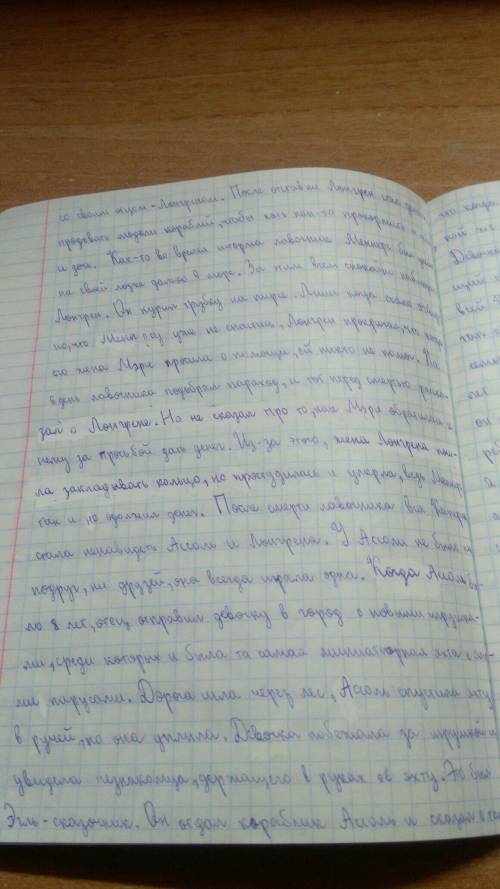 со своим отцом - Лонгреном. После отставки Лонгрен стал
продавать модели кораблей, чтобы хоть как-то прокормить и
и дочь. Как-то во время шторма лавочник Меннерс был
на своей лодке далеко в море. За этим всем спокойно наблюдал
Лонгрен. Он курил трубку на пирсе. Лишь когда стало
но, что Меннерса уже не спасти, Лонгрен прокричал, что
его жена Мэри просила о помощи, ей никто не помог.
в день лавочника подобрал пароход, и тот перед смертью расска-
зал о Лонгрене. Но не сказал про то, как Мэри обращалась к
нему за просьбой дать денег. Из-за этого, жена Лонгрена
ла закладывать кольцо, но простудилась и умерла, ведь
так и не одолжил денег. После смерти лавочника вся Каперна
стала ненавидеть Ассоль и Лонгрена. У Ассоли не было ни
подруг, ни друзей, она всегда играла одна. Когда Ассоль
ло 8 лет, отец отправил девочку в город с новыми игрушка-
ми, среди которых и была та самая миниатюрная яхта с
ми парусами. Дорога шла через лес, Ассоль опустила яхту
в ручей, но она уплыла. Девочка побежала за игрушкой и
увидела незнакомца, держащего в руках её яхту. Это был
Эгль - сказочник. Он отдал кораблик Ассоль и сказал о том
что когда
Девочка